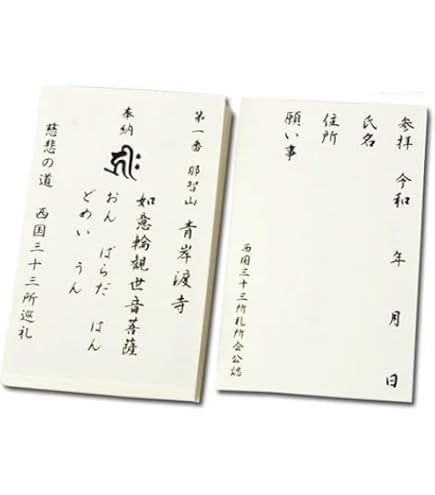 第一番 那智山 青岸渡寺
奉納
如意輪観世音菩薩
おん ばらだ はん
どめい うん
慈悲の道 西国三十三所巡礼
参拝 令和 年 月 日
氏名
住所
願い事
西国三十三所札所会公認